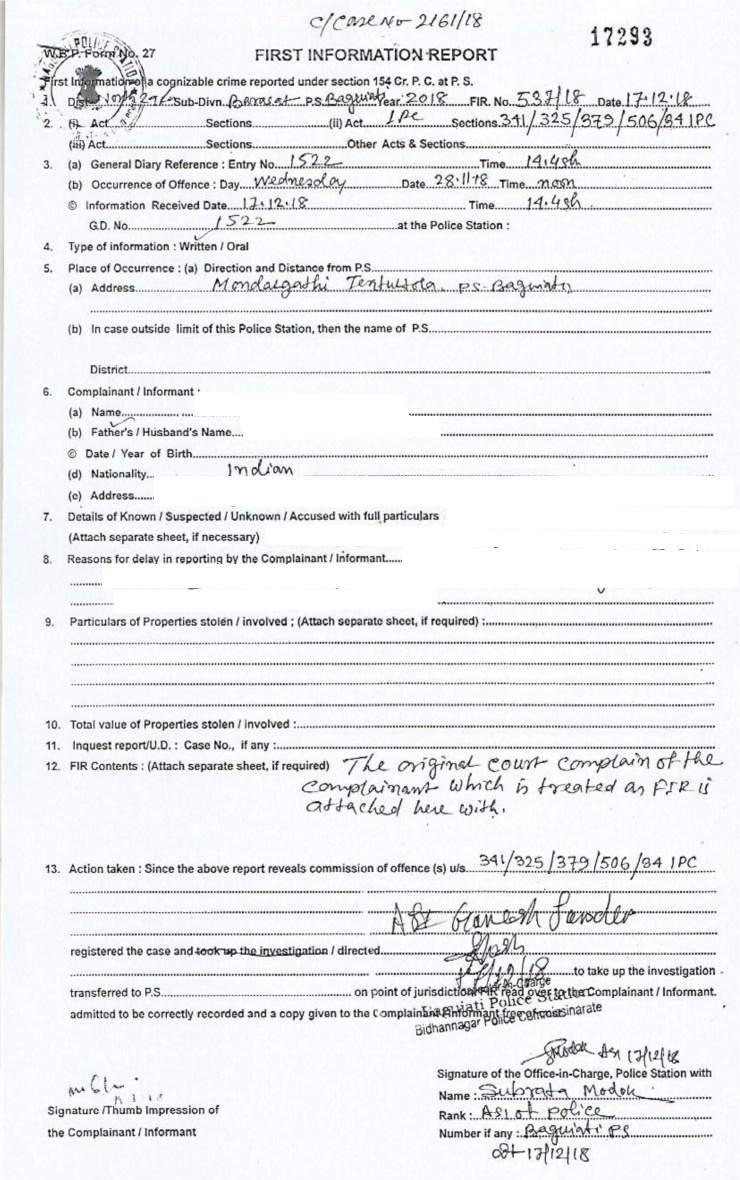 C/Case No 2161/18
17293
W.B.P. Form No. 27
FIRST INFORMATION REPORT
First Information of a cognizable crime reported under section 154 Cr. P. C. at P. S.
1. Dist. Sub-Divn. Barasat P.S. Baguiati Year. 2018 FIR. No. 537/18 Date 17.12.18
2. (i) Act Sections (ii) Act IPC Sections. 341/325/379/506/34 IPC
(iii) Act Sections Other Acts & Sections
3. (a) General Diary Reference : Entry No. 1522 Time 14.45h
(b) Occurrence of Offence : Day Wednesday Date 28.11.18 Time noon
© Information Received Date 17.12.18 Time 14.45h
G.D. No. 1522 at the Police Station :
4. Type of information : Written / Oral
5. Place of Occurrence : (a) Direction and Distance from P.S.
(a) Address Mondalgathi Tentultola. P.S- Baguiati
(b) In case outside limit of this Police Station, then the name of P.S.
District
6. Complainant / Informant
(a) Name
(b) Father's / Husband's Name
© Date / Year of Birth
(d) Nationality Indian
(c) Address
7. Details of Known / Suspected / Unknown / Accused with full particulars
(Attach separate sheet, if necessary)
8. Reasons for delay in reporting by the Complainant / Informant
9. Particulars of Properties stolen / involved ; (Attach separate sheet, if required) :
10. Total value of Properties stolen / involved :
11. Inquest report/U.D. : Case No., if any :
12. FIR Contents : (Attach separate sheet, if required) The original court complain of the
complainant which is treated as FIR is
attached here with.
13. Action taken : Since the above report reveals commission of offence (s) u/s 341/325/379/506/34 IPC
ASI Ganesh
registered the case and took up the investigation / directed
to take up the investigation
transferred to P.S. on point of jurisdiction FIR read over to the Complainant / Informant.
admitted to be correctly recorded and a copy given to the Complainant/Informant free of cost
Baguiati Police Station
Bidhannagar Police Commissinarate
SModak ASI 17/12/18
Signature of the Office-in-Charge, Police Station with
Name : Subrata Modok
Rank : ASI of police
Number if any : Baguiati PS
dt-17/12/18
Signature /Thumb Impression of
the Complainant / Informant